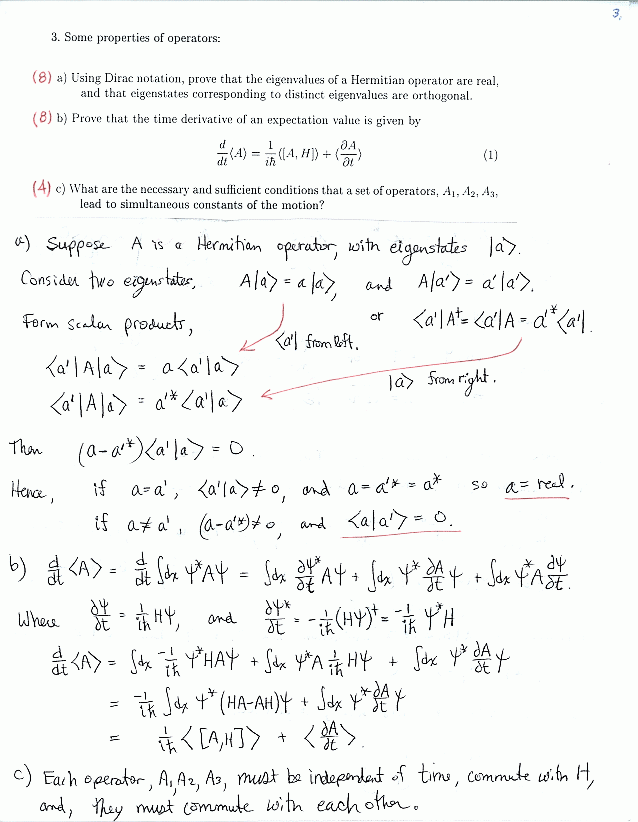 3.
3. Some properties of operators:
(8) a) Using Dirac notation, prove that the eigenvalues of a Hermitian operator are real,
and that eigenstates corresponding to distinct eigenvalues are orthogonal.
(8) b) Prove that the time derivative of an expectation value is given by
d/dt ⟨A⟩ = 1/iℏ ⟨[A, H]⟩ + ⟨∂A/∂t⟩ (1)
(4) c) What are the necessary and sufficient conditions that a set of operators, A₁, A₂, A₃,
lead to simultaneous constants of the motion?
a) Suppose A is a Hermitian operator, with eigenstates |a⟩.
Consider two eigenstates, A|a⟩ = a|a⟩, and A|a'⟩ = a'|a'⟩.
or ⟨a'|A† = ⟨a'|A = a'*⟨a'|.
Form scalar products, ⟨a'| from left.
⟨a'|A|a⟩ = a⟨a'|a⟩
|a⟩ from right.
⟨a'|A|a⟩ = a'*⟨a'|a⟩
Then (a-a'*)⟨a'|a⟩ = 0.
Hence, if a=a', ⟨a'|a⟩≠0, and a=a'*=a* so a=real.
if a≠a', (a-a'*)≠0, and ⟨a|a'⟩ = 0.
b) d/dt ⟨A⟩ = d/dt ∫dx ψ*Aψ = ∫dx ∂ψ*/∂t Aψ + ∫dx ψ* ∂A/∂t ψ + ∫dx ψ*A ∂ψ/∂t.
Where ∂ψ/∂t = 1/iℏ Hψ, and ∂ψ*/∂t = -1/iℏ (Hψ)† = -1/iℏ ψ*H
d/dt ⟨A⟩ = ∫dx -1/iℏ ψ*HAψ + ∫dx ψ*A 1/iℏ Hψ + ∫dx ψ* ∂A/∂t ψ
= -1/iℏ ∫dx ψ*(HA-AH)ψ + ∫dx ψ* ∂A/∂t ψ
= 1/iℏ ⟨[A,H]⟩ + ⟨∂A/∂t⟩.
c) Each operator, A₁, A₂, A₃, must be independent of time, commute with H,
and, they must commute with each other.